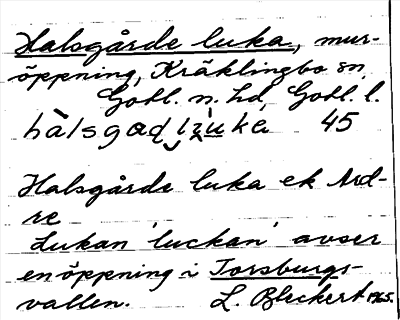 Halsgårde luka, mur-
öppning, Kräklingbo sn,
Gotl. n. hd, Gotl. l.
45
Halsgårde luka ek Ard-
re
Lukan 'luckan' avser
en öppning i Torsburgs-
vallen. L. Bleckert 1965.